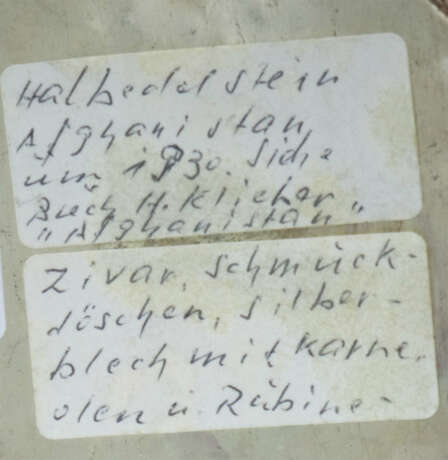 Halbedelstein
Afghanistan
um 1930. Siehe
Buch H. Klicher
"Afghanistan"
Zivar, Schmuck-
döschen, Silber-
blech mit Karne-
olen u. Rubine-